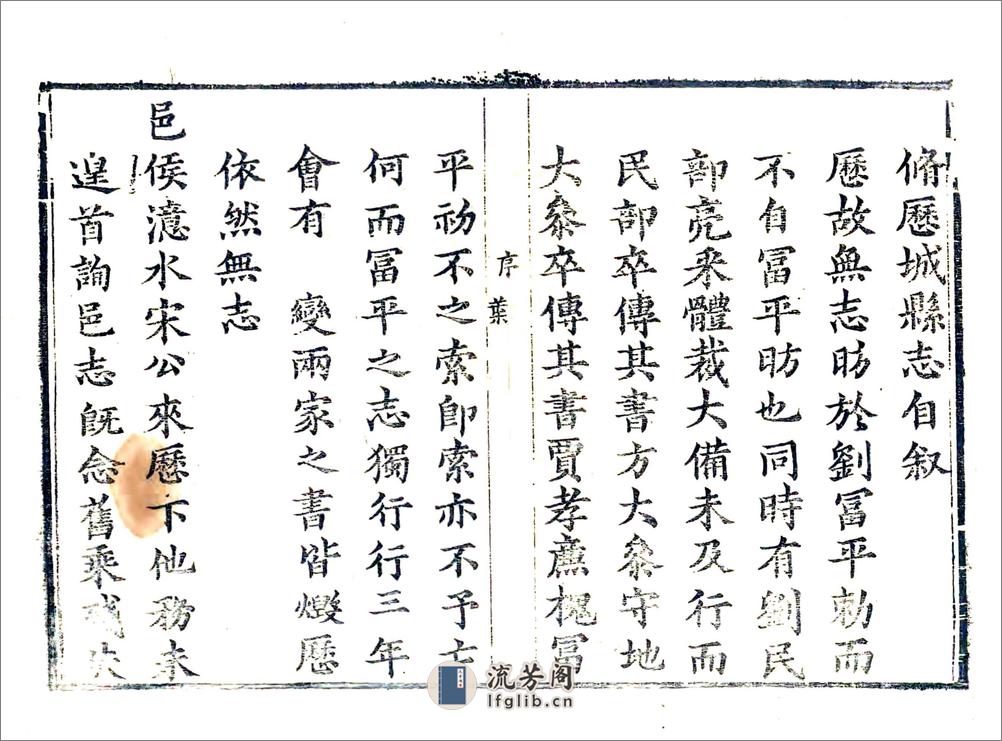 脩歷城縣志自叙
歷故無志昉於劉冨平勑而
不自冨平昉也同時有劉民
部亮采體裁大備未及行而
民部卒傳其書方大叅守地
大叅卒傳其書賈孝廉槐冨
序 葉
平初不之索即索亦不予亡
何而冨平之志獨行行三年
會有 變兩家之書皆燬歷
依然無志
邑侯濦水宋公來歷下他務未
遑首詢邑志旣念舊乘或失
流芳阁
lfglib.cn